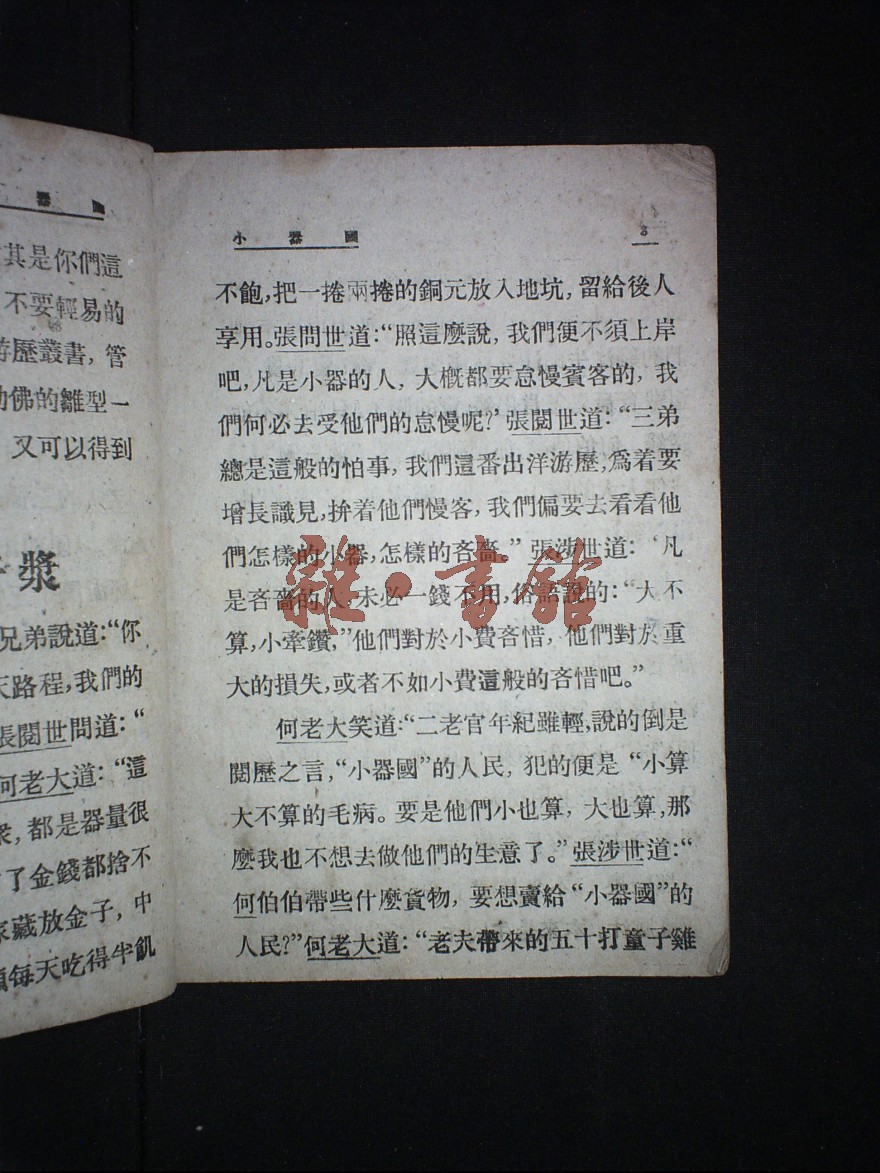 器國
其是你們這
不要輕易的
游歷叢書，管
彷佛的雛型一
又可以得到
漿
兄弟說道：“你
天路程，我們的
張閱世問道：“
何老大道：“這
衆，都是器量很
了金錢都捨不
家藏放金子，中
每天吃得半飢
小器國
3
不飽，把一捲兩捲的銅元放入地坑，留給後人
享用。張問世道：“照這麼說，我們便不須上岸
吧，凡是小器的人，大概都要怠慢賓客的，我
們何必去受他們的怠慢呢？’張閱世道：“三弟
總是這般的怕事，我們這番出洋游歷，爲着要
增長識見，拚着他們慢客，我們偏要去看看他
們怎樣的小器，怎樣的吝嗇。”張涉世道：‘凡
是吝嗇的人，未必一錢不用，俗語說的：“大不
算，小牽鑽，”他們對於小費吝惜，他們對於重
大的損失，或者不如小費這般的吝惜吧。”
何老大笑道：“二老官年紀雖輕，說的倒是
閱歷之言，“小器國”的人民，犯的便是“小算
大不算的毛病。要是他們小也算，大也算，那
麼我也不想去做他們的生意了。”張涉世道：“
何伯伯帶些什麼貨物，要想賣給“小器國”的
人民？”何老大道：“老夫帶來的五十打童子雞
雜·書館